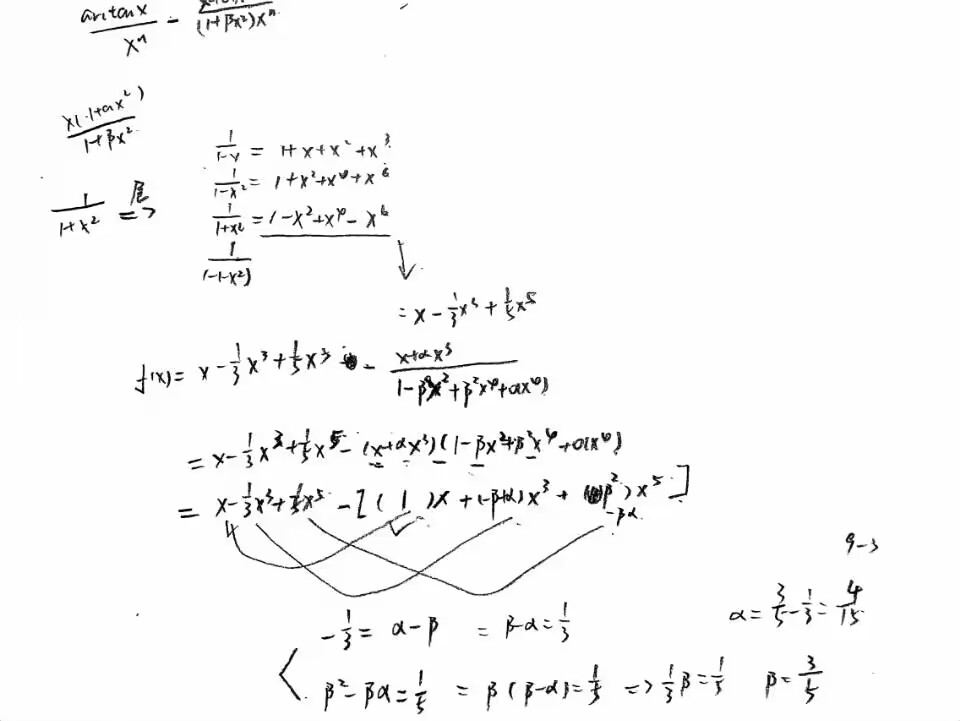 arctan x / xⁿ - x+αx³ / (1+βx²)xⁿ
x(1+αx²) / 1+βx²
1 / 1+x² 尾 =>
1/1-x = 1+x+x²+x³
1/1-x² = 1+x²+x⁴+x⁶
1/1+x² = 1-x²+x⁴-x⁶
1/(1-(-x²))
= x - 1/3 x³ + 1/5 x⁵
f(x) = x - 1/3 x³ + 1/5 x³ - x+αx³ / 1-βx²+β²x⁴+o(x⁴)
= x - 1/3 x³ + 1/5 x⁵ - (x+αx³)(1-βx²+β²x⁴+o(x⁴))
= x - 1/3 x³ + 1/5 x⁵ - [(1)x + (-β+α)x³ + (β²-βα)x⁵]
9-3
-1/3 = α-β = β-α = 1/3
α = 3/5 - 1/3 = 4/15
β²-βα = 1/5 = β(β-α) = 1/5 => 1/3 β = 1/5 β = 3/5